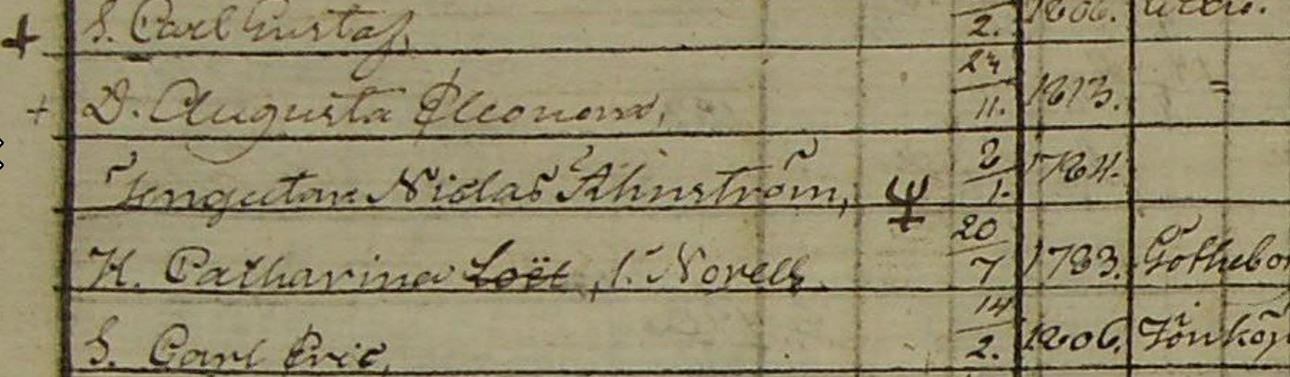 S. Carl Gustaf, 2. 1806.
D. Augusta Eleonora, 24/11. 1813. =
Niclas 2/1. 1764.
H. Catharina Loët, l. Norell 20/7 1783. Göthebor
S. Carl Eric, 14/2. 1806. Jönköp